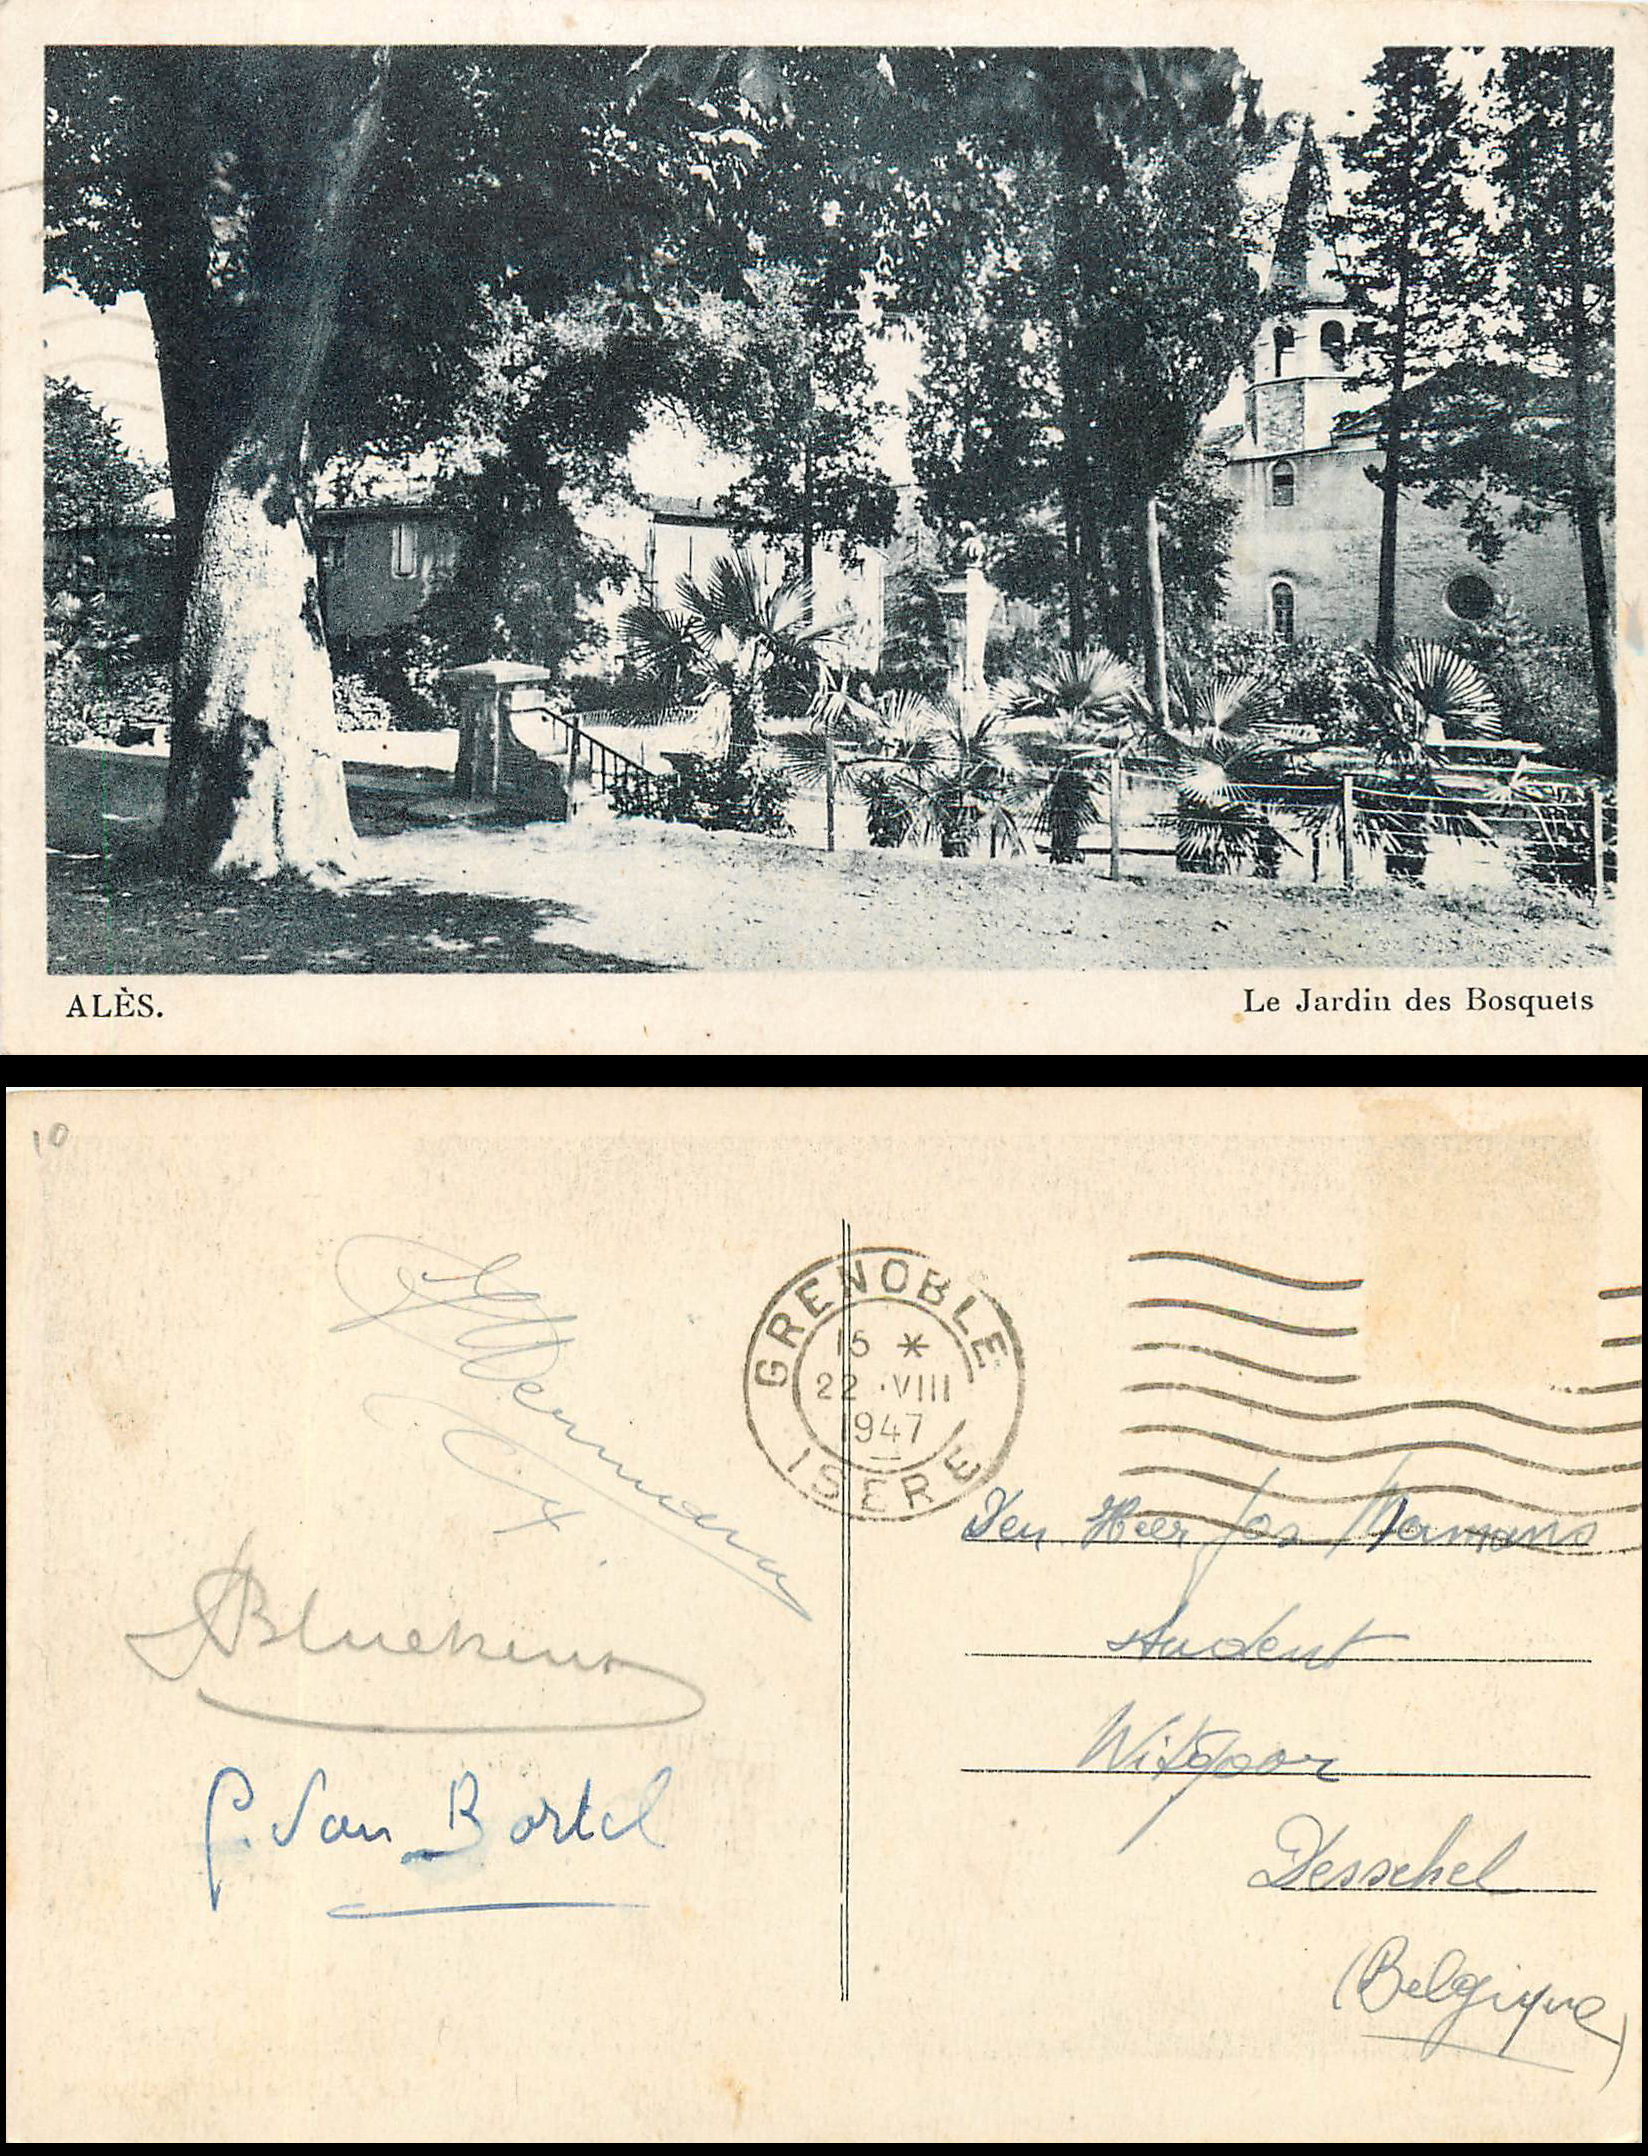 ALÈS.
Le Jardin des Bosquets
10
GRENOBLE
15 *
22 ·VIII
1947
ISERE
G. Van Bortel
Den Heer Jos
Student
Witgoor
Desschel
(Belgique)